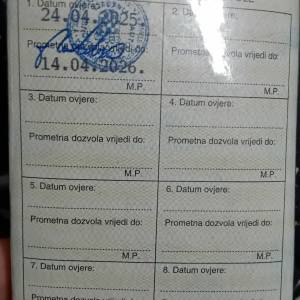 1. Datum ovjere:
24.04.2025.
Prometna dozvola vrijedi do:
14.04.2026.
M.P.
2. Datum ovjere:
Prometna dozvola vrijedi do:
M.P.
3. Datum ovjere:
Prometna dozvola vrijedi do:
M.P.
4. Datum ovjere:
Prometna dozvola vrijedi do:
M.P.
5. Datum ovjere:
Prometna dozvola vrijedi do:
M.P.
6. Datum ovjere:
Prometna dozvola vrijedi do:
M.P.
7. Datum ovjere:
Prometna dozvola vrijedi do:
8. Datum ovjere:
Prometna dozvola vrijedi do: